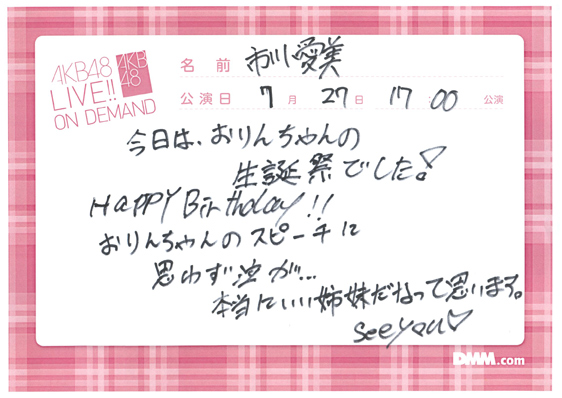 AKB48
LIVE!!
ON DEMAND
AKB
48
名前 市川愛美
公演日 7月27日 17:00 公演
今日は、おりんちゃんの
生誕祭でした!
HAPPY Birthday!!
おりんちゃんのスピーチに
思わず泣が...
本当にいい姉妹だなって思います。
see you♡
DMM.com